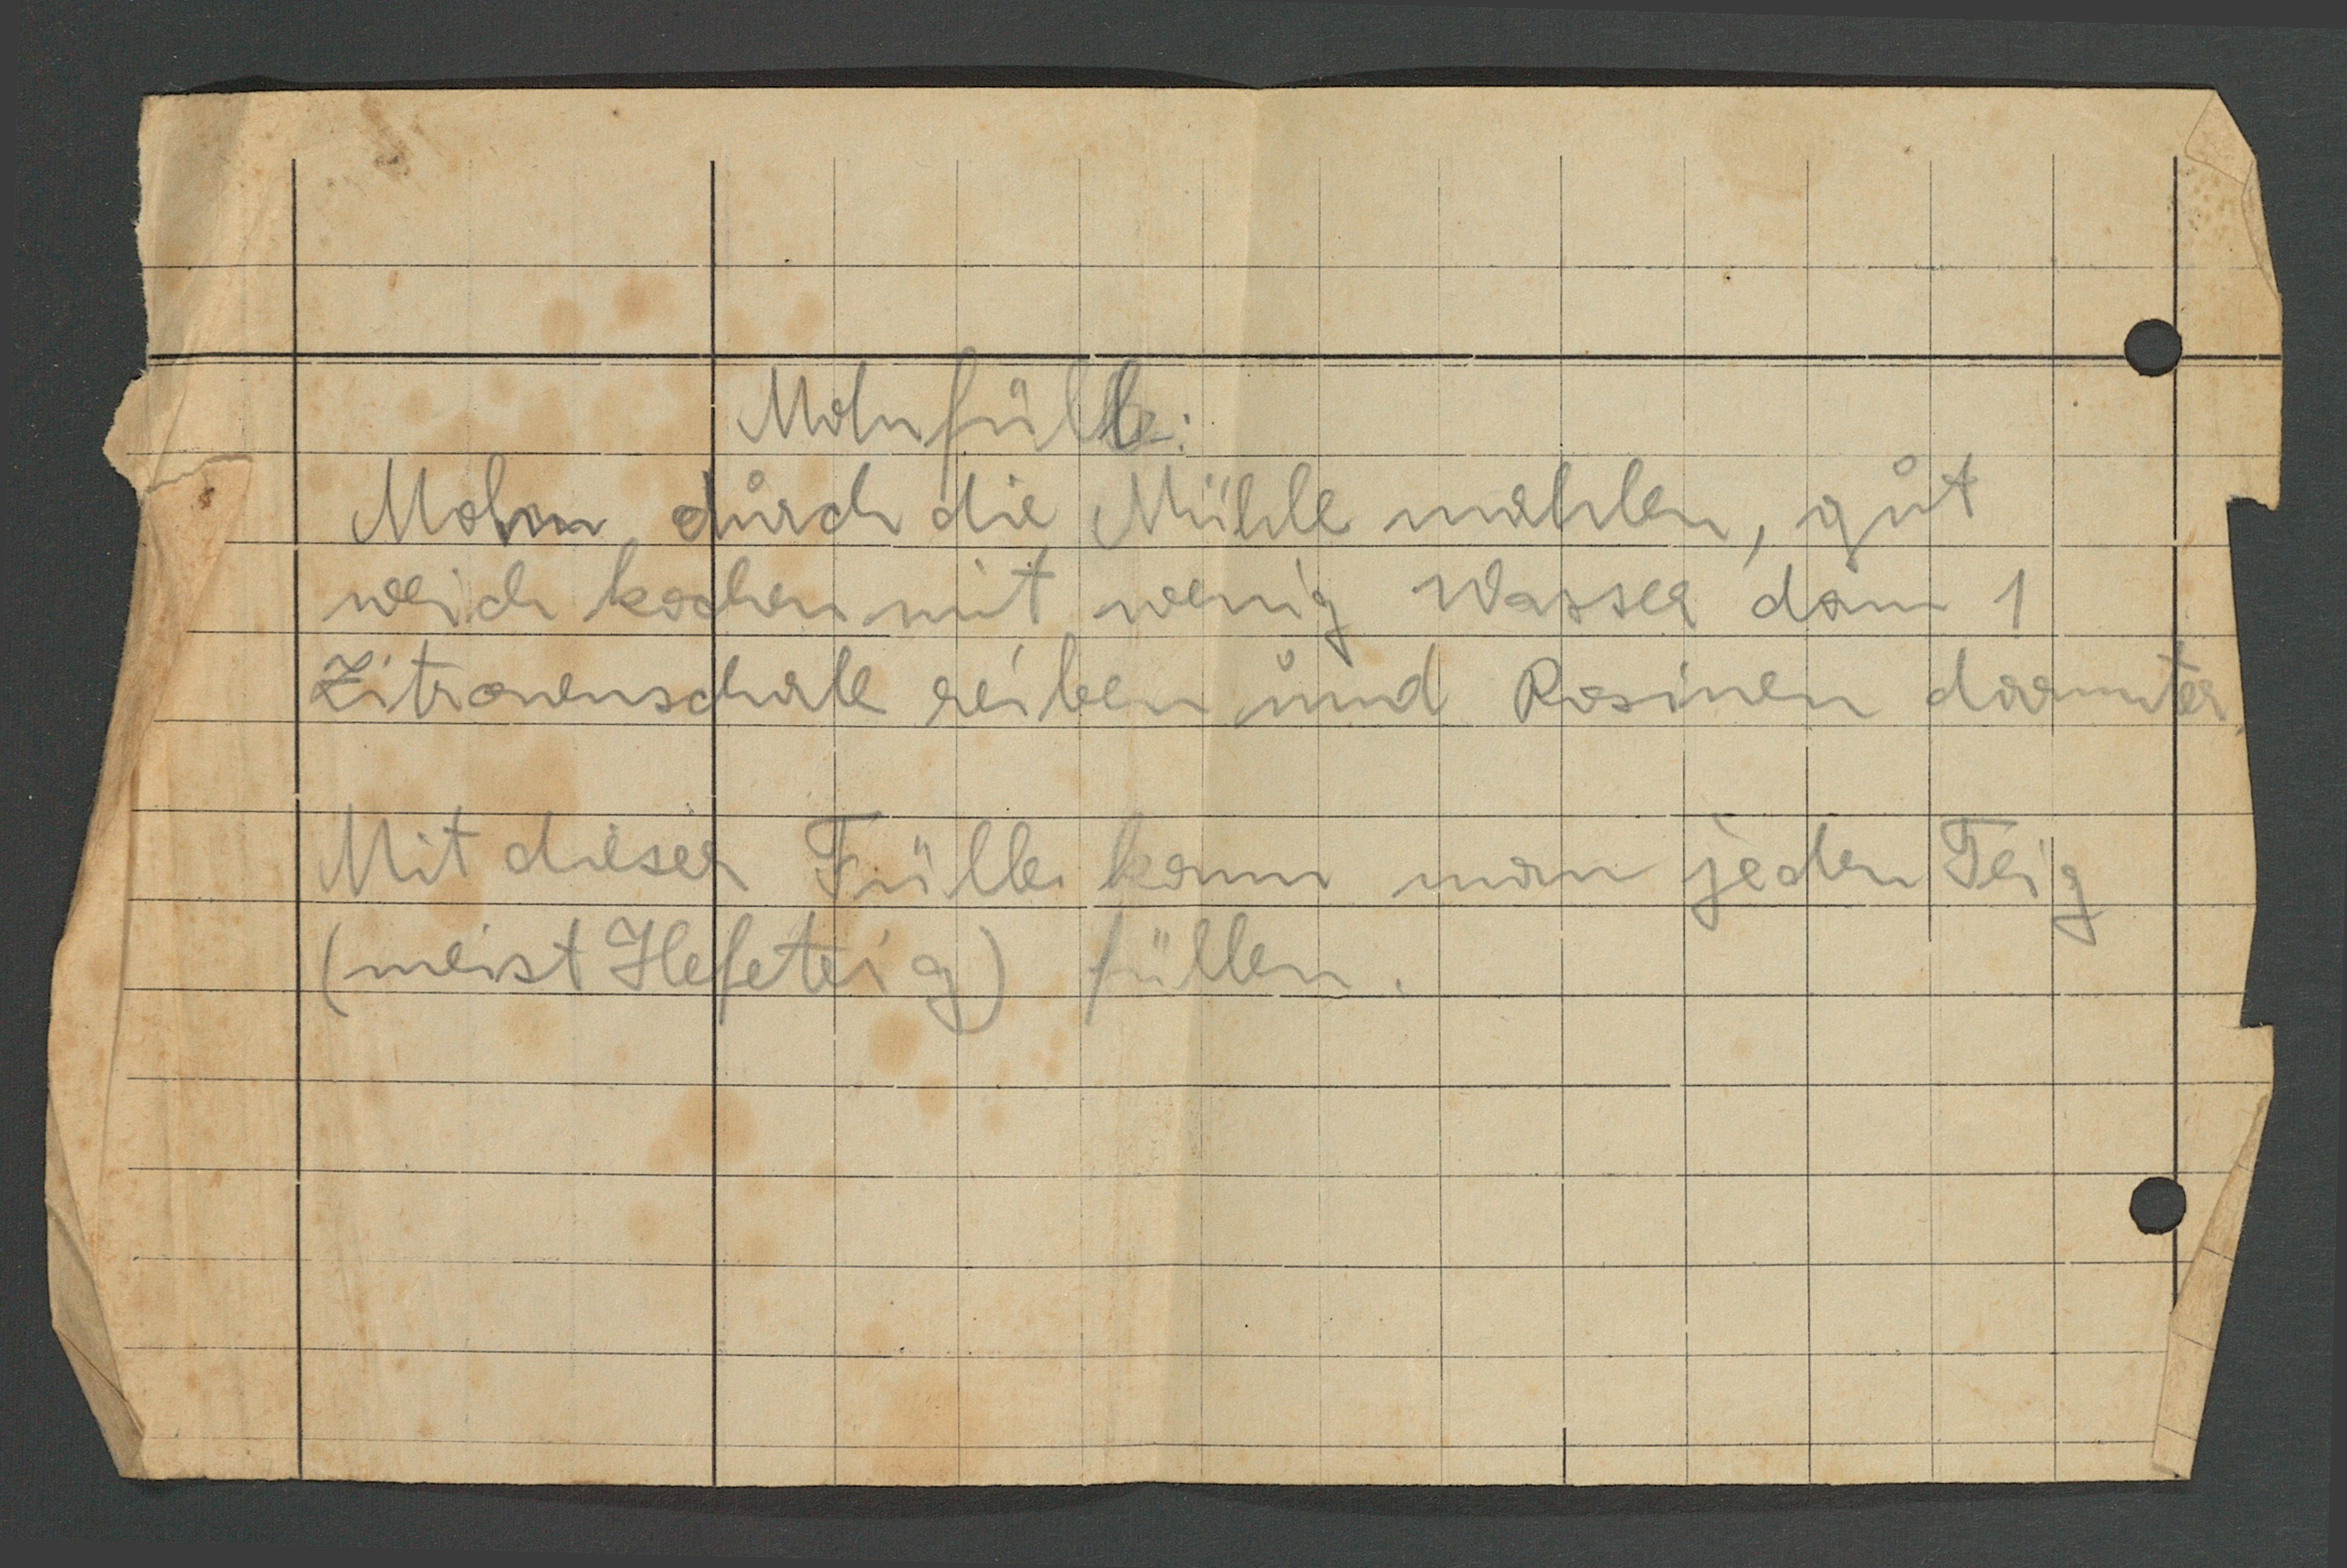 Mohnfülle:
Mohn durch die Mühle mahlen, gut
weich kochen mit wenig Wasser dann 1
Zitronenschale reiben und Rosinen darunter.
Mit dieser Fülle kann man jeden Teig
(meist Hefeteig) füllen.